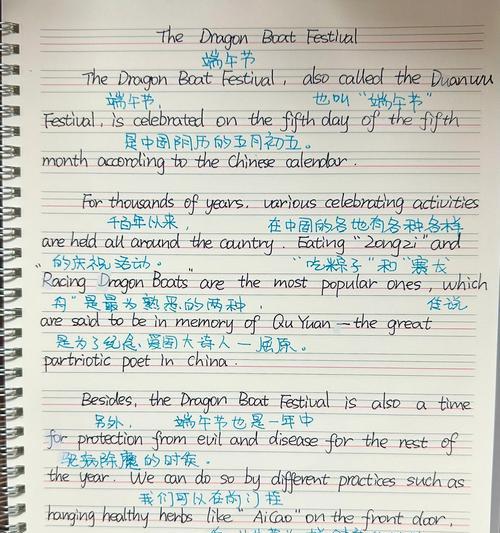 The Dragon Boat Festival
端午节
The Dragon Boat Festival, also called the Duanwu
端午节, 也叫“端午节”
Festival, is celebrated on the fifth day of the fifth
是中国阴历的五月初五。
month according to the Chinese calendar.
For thousands of years, various celebrating activities
千百年以来, 在中国的各地有各种各样
are held all around the country. Eating "Zongzi" and
的庆祝活动。 “吃粽子”和“赛龙
"Racing Dragon Boats" are the most popular ones, which
舟”是最为熟悉的两种, 传说
are said to be in memory of Qu Yuan — the great
是为了纪念爱国大诗人—屈原。
partriotic poet in China.
Besides, the Dragon Boat Festival is also a time
另外, 端午节也是一年中
for protection from evil and disease for the rest of
免病除魔的时候。
the year. We can do so by different practices such as
我们可以在前门挂
hanging healthy herbs like "AiCao" on the front door,